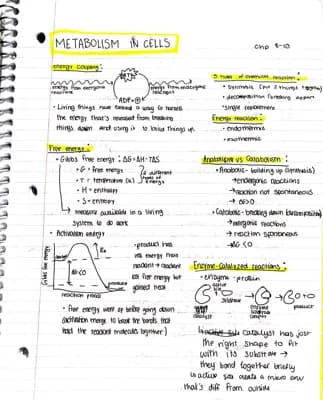 METABOLISM IN CELLS
Chp 8-10
energy coupling:
ATP
energy from exergonic
reactions
energy from endergonic
reactions
ADP + P
• Living things have found a way to harness
the energy that's released from breaking
things down and using it to build things up.
Free energy:
• Gibbs Free energy: ΔG = ΔH - TΔS
• G = Free energy
• T = temperature (K)
• H = enthalpy
• S = entropy
2 different
types of
energy
→ measure available in a living
system to do work
• Activation energy
Gibbs free energy
Ea
ΔG<0
products
reaction process
• product has
less energy than
reactant → reactant
lost free energy but
gained heat
• Free energy went up before going down
(activation energy to break the bonds that
hold the reactant molecules together)
3 types of chemical reaction:
• synthesis (put 2 things together)
• decomposition (breaking apart)
• single replacement
Energy reaction:
• endothermic
• exothermic
Anabolism vs Catabolism:
• Anabolic - building up (synthesis)
→ endergonic reactions
→ reaction not spontaneous
→ ΔG>0
• Catabolic - breaking down (decomposition)
→ exergonic reactions
→ reaction spontaneous
→ ΔG<0
Enzyme-Catalyzed reactions:
• enzyme - protein
active
site
substrate
enzyme
catalyst
enzyme
substrate
complex
product
catalyst has just
the right shape to fit
with its substrate →
they bond together briefly
in active site create a micro env
that's diff from outside